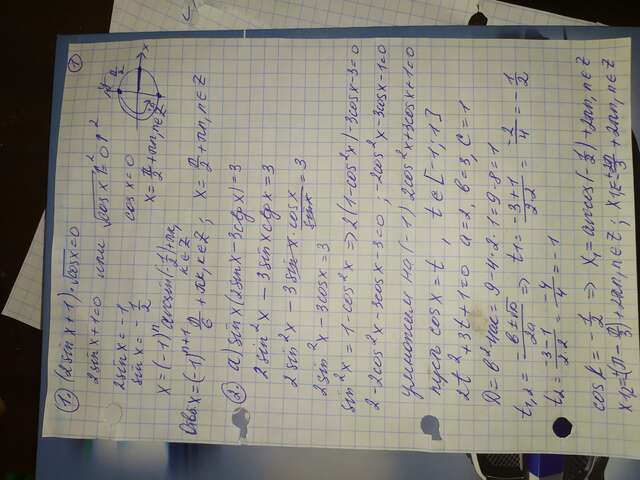 ①
1) (2sinx+1)·√cosx=0
2sinx+1=0 или √cosx²=0²
2sinx=-1 cosx=0
sinx=-1/2 x=π/2+πn, n∈Z
x=(-1)ⁿ arcsin(-1/2)+πk, k∈Z
x=(-1)ⁿ⁺¹ π/6+πk, k∈Z; x=π/2+πn, n∈Z
② a) sinx(2sinx-3ctgx)=3
2sin²x-3sinxctgx=3
2sin²x-3sinx·cosx/sinx=3
2sin²x-3cosx=3
sin²x=1-cos²x => 2(1-cos²x)-3cosx-3=0
2-2cos²x-3cosx-3=0; -2cos²x-3cosx-1=0
умножаем на (-1) 2cos²x+3cosx+1=0
пусть cosx=t, t∈[-1;1]
2t²+3t+1=0 a=2, b=3, c=1
D=b²-4ac=9-4·2·1=9-8=1
t₁,₂=-b±√D/2a => t₁=-3+1/2·2=-2/4=-1/2
t₂=-3-1/2·2=-4/4=-1
=> x₁=arccos(-1/2)+2πn, n∈Z